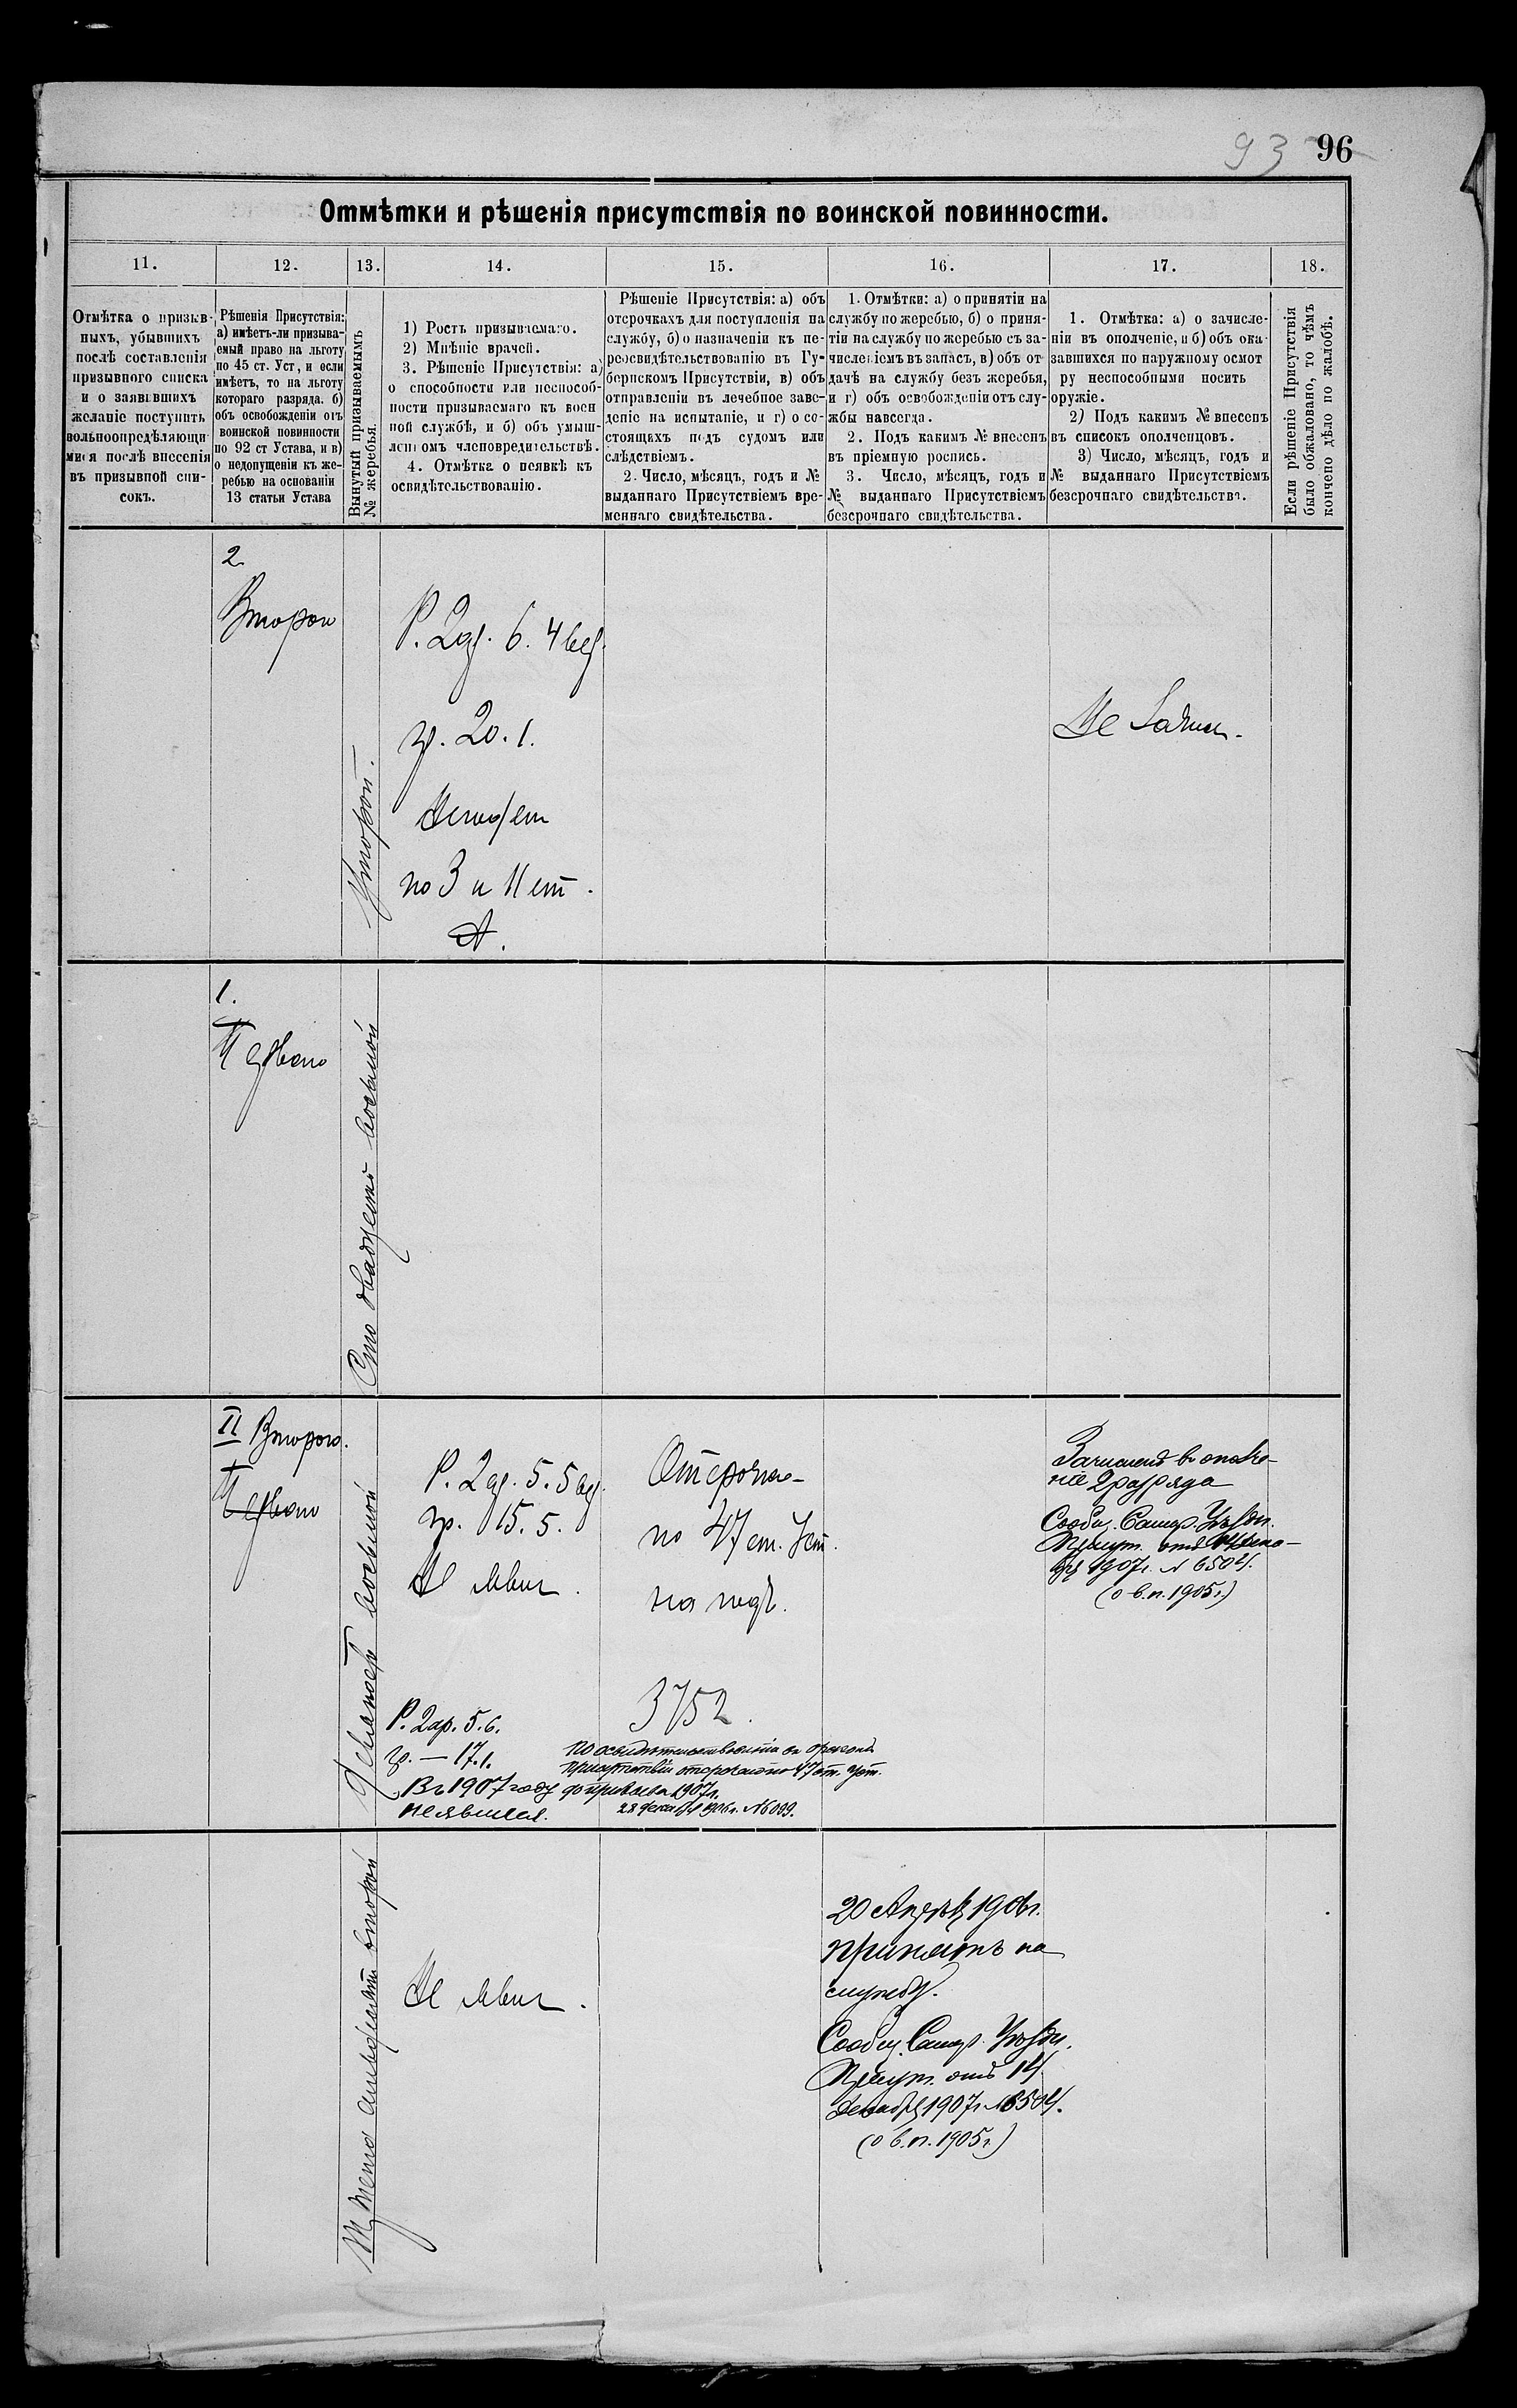 93 96
Отмѣтки и рѣшенія присутствія по воинской повинности.
11. 12. 13. 14. 15. 16. 17. 18.
Отмѣтка о призыв-
ныхъ, убывшихъ
послѣ составленія
призывного списка
и о заявившихъ
желаніе поступить
вольноопредѣляющи
мися послѣ внесенія
въ призывной спи-
сокъ.
Рѣшенія Присутствія:
а) имѣетъ-ли призыва-
емый право на льготу
по 45 ст. Уст, и если
имѣетъ, то на льготу
котораго разряда. б)
объ освобожденіи отъ
воинской повинности
по 92 ст Устава, и в)
о недопущеніи къ же-
ребью на основаніи
13 статьи Устава
Вынутый призываемымъ
№ жеребья.
1) Ростъ призываемаго.
2) Мнѣніе врачей.
3. Рѣшеніе Присутствія: а)
о способности или неспособ-
ности призываемаго къ воен
ной службѣ, и б) объ умыш-
ленномъ членовредительствѣ.
4. Отмѣтка о неявкѣ къ
освидѣтельствованію.
Рѣшеніе Присутствія: а) объ
отсрочкахъ для поступленія на
службу, б) о назначеніи къ пе-
реосвидѣтельствованію въ Гу-
бернскомъ Присутствіи, в) объ
отправленіи въ лечебное заве-
деніе на испытаніе, и г) о со-
стоящихъ подъ судомъ или
слѣдствіемъ.
2. Число, мѣсяцъ, годъ и №
выданнаго Присутствіемъ вре-
меннаго свидѣтельства.
1. Отмѣтки: а) о принятіи на
службу по жеребью, б) о приня-
тіи на службу по жеребью съ за-
численіемъ въ запасъ, в) объ от
дачѣ на службу безъ жеребья,
и г) объ освобожденіи отъ слу-
жбы навсегда.
2. Подъ какимъ № внесенъ
въ пріемную роспись.
3. Число, мѣсяцъ, годъ и
№ выданнаго Присутствіемъ
безсрочнаго свидѣтельства.
1. Отмѣтка: а) о зачисле-
ніи въ ополченіе, и б) объ ока
завшихся по наружному осмот
ру неспособными носить
оружіе.
2) Подъ какимъ № внесенъ
въ списокъ ополченцовъ.
3) Число, мѣсяцъ, годъ и
№ выданнаго Присутствіемъ
безсрочнаго свидѣтельства.
Если рѣшеніе Присутствія
было обжаловано, то чѣмъ
кончено дѣло по жалобѣ.
2
Второй
Р. 2ар. 6. 4
гр. 20. 1.
по 3 и 11 ст.
А.
Не
1.
Перваго
Сто двадцать восьмой
II Второго.
Перваго
восьмой
Р. 2ар. 5. 5
гр. 15. 5.
Не явил.
Р. 2ар. 5. 6.
гр. — 17. 1.
Въ 1907 году
не явился.
Отсрочка
по 47 ст. Уст.
на годъ.
3752.
По освидѣтельствованіи въ
отсрочено по 47 ст. Уст.
до призыва 1907 г.
28 декабря 1906 г. № 6099.
Зачисленъ въ ополче-
ніе 2 разряда
Сообщ. Самар. Уѣздн.
Присут. отъ 14 дека-
бря 1907 г. № 6504.
(о в. п. 1905 г.)
Триста второй
Не явил.
20 Апрѣля 1906 г.
принятъ на
службу.
Сообщ. Самар. Уѣздн.
Присут. отъ 14
декабря 1907 г. № 6504.
(о в. п. 1905 г.)